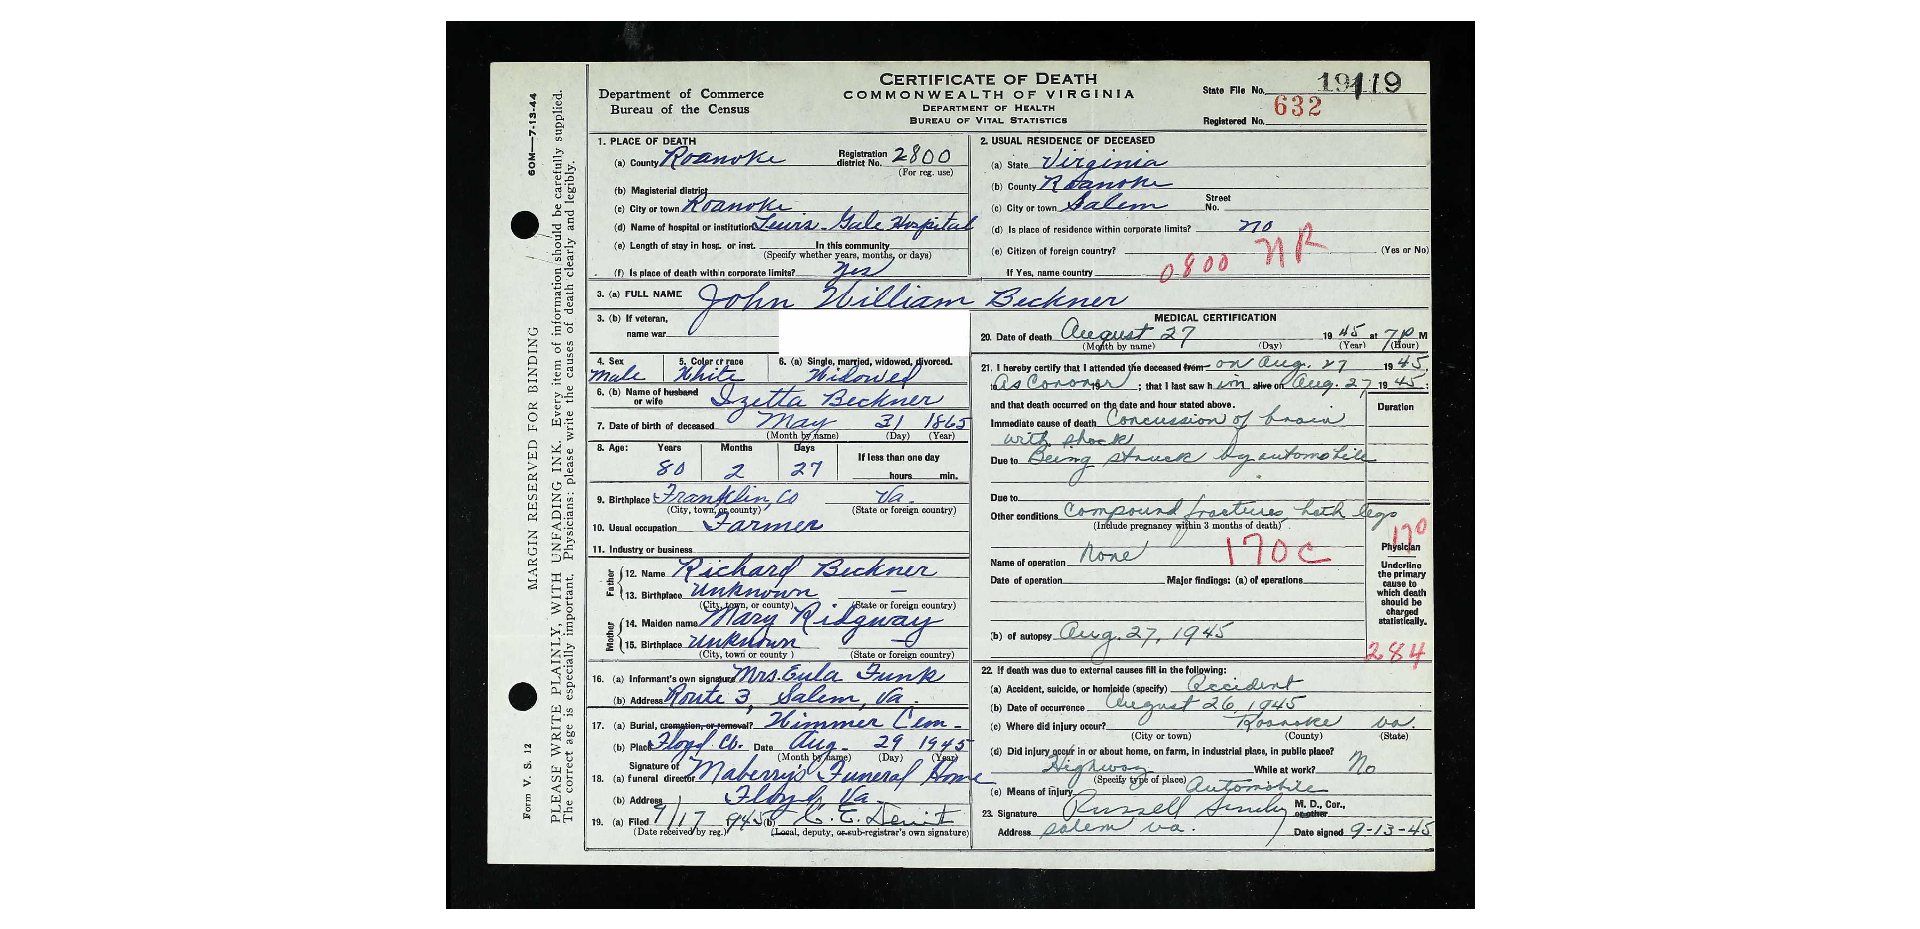 CERTIFICATE OF DEATH
COMMONWEALTH OF VIRGINIA
DEPARTMENT OF HEALTH
BUREAU OF VITAL STATISTICS
Department of Commerce
Bureau of the Census
State File No. 19119
Registered No. 632
60M—7-13-44
MARGIN RESERVED FOR BINDING
Form V. S. 12
PLEASE WRITE PLAINLY, WITH UNFADING INK. Every item of information should be carefully supplied.
The correct age is especially important. Physicians: please write the causes of death clearly and legibly.
1. PLACE OF DEATH
(a) County Roanoke Registration district No. 2800
(For reg. use)
(b) Magisterial district
(c) City or town Roanoke
(d) Name of hospital or institution Lewis-Gale Hospital
(e) Length of stay in hosp. or inst. In this community
(Specify whether years, months, or days)
(f) Is place of death within corporate limits? Yes
2. USUAL RESIDENCE OF DECEASED
(a) State Virginia
(b) County Roanoke
(c) City or town Salem Street No.
(d) Is place of residence within corporate limits? no
(e) Citizen of foreign country? (Yes or No)
NR
If Yes, name country 0800
3. (a) FULL NAME John William Beckner
3. (b) If veteran,
name war
4. Sex 5. Color or race 6. (a) Single, married, widowed, divorced.
Male White Widowed
6. (b) Name of husband or wife Izetta Beckner
7. Date of birth of deceased May 31 1865
(Month by name) (Day) (Year)
8. Age: Years Months Days If less than one day
80 2 27 hours min.
9. Birthplace Franklin, Co Va.
(City, town, or county) (State or foreign country)
10. Usual occupation Farmer
11. Industry or business
Father
12. Name Richard Beckner
13. Birthplace Unknown —
(City, town, or county) (State or foreign country)
Mother
14. Maiden name Mary Ridgway
15. Birthplace Unknown —
(City, town or county) (State or foreign country)
16. (a) Informant's own signature Mrs. Eula Funk
(b) Address Route 3, Salem, Va.
17. (a) Burial, cremation, or removal? Wimmer Cem-
(b) Place Floyd Co. Date Aug- 29 1945
(Month by name) (Day) (Year)
Signature of
18. (a) funeral director Maberry's Funeral Home
(b) Address Floyd, Va-
19. (a) Filed 9/17 1945 (b) C. E.
(Date received by reg.) (Local, deputy, or sub-registrar's own signature)
MEDICAL CERTIFICATION
20. Date of death August 27 1945 at 7 P M
(Month by name) (Day) (Year) (Hour)
21. I hereby certify that I attended the deceased from on Aug. 27 1945,
to As Coroner 19 ; that I last saw him alive on Aug. 27 1945;
and that death occurred on the date and hour stated above. Duration
Immediate cause of death Concussion of brain
with shock
Due to Being struck by automobile
Due to
Other conditions Compound fractures both legs
(Include pregnancy within 3 months of death)
170
Name of operation None 170C
Date of operation Major findings: (a) of operations
Physician
Underline
the primary
cause to
which death
should be
charged
statistically.
(b) of autopsy Aug. 27, 1945
284
22. If death was due to external causes fill in the following:
(a) Accident, suicide, or homicide (specify) Accident
(b) Date of occurrence August 26, 1945
(c) Where did injury occur? Roanoke va.
(City or town) (County) (State)
(d) Did injury occur in or about home, on farm, in industrial place, in public place?
Highway While at work? No
(Specify type of place)
(e) Means of injury Automobile
23. Signature Russell M. D., Cor., or other
Address Salem va. Date signed 9-13-45